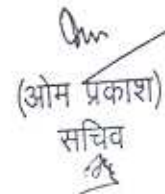 (ओम प्रकाश)
सचिव